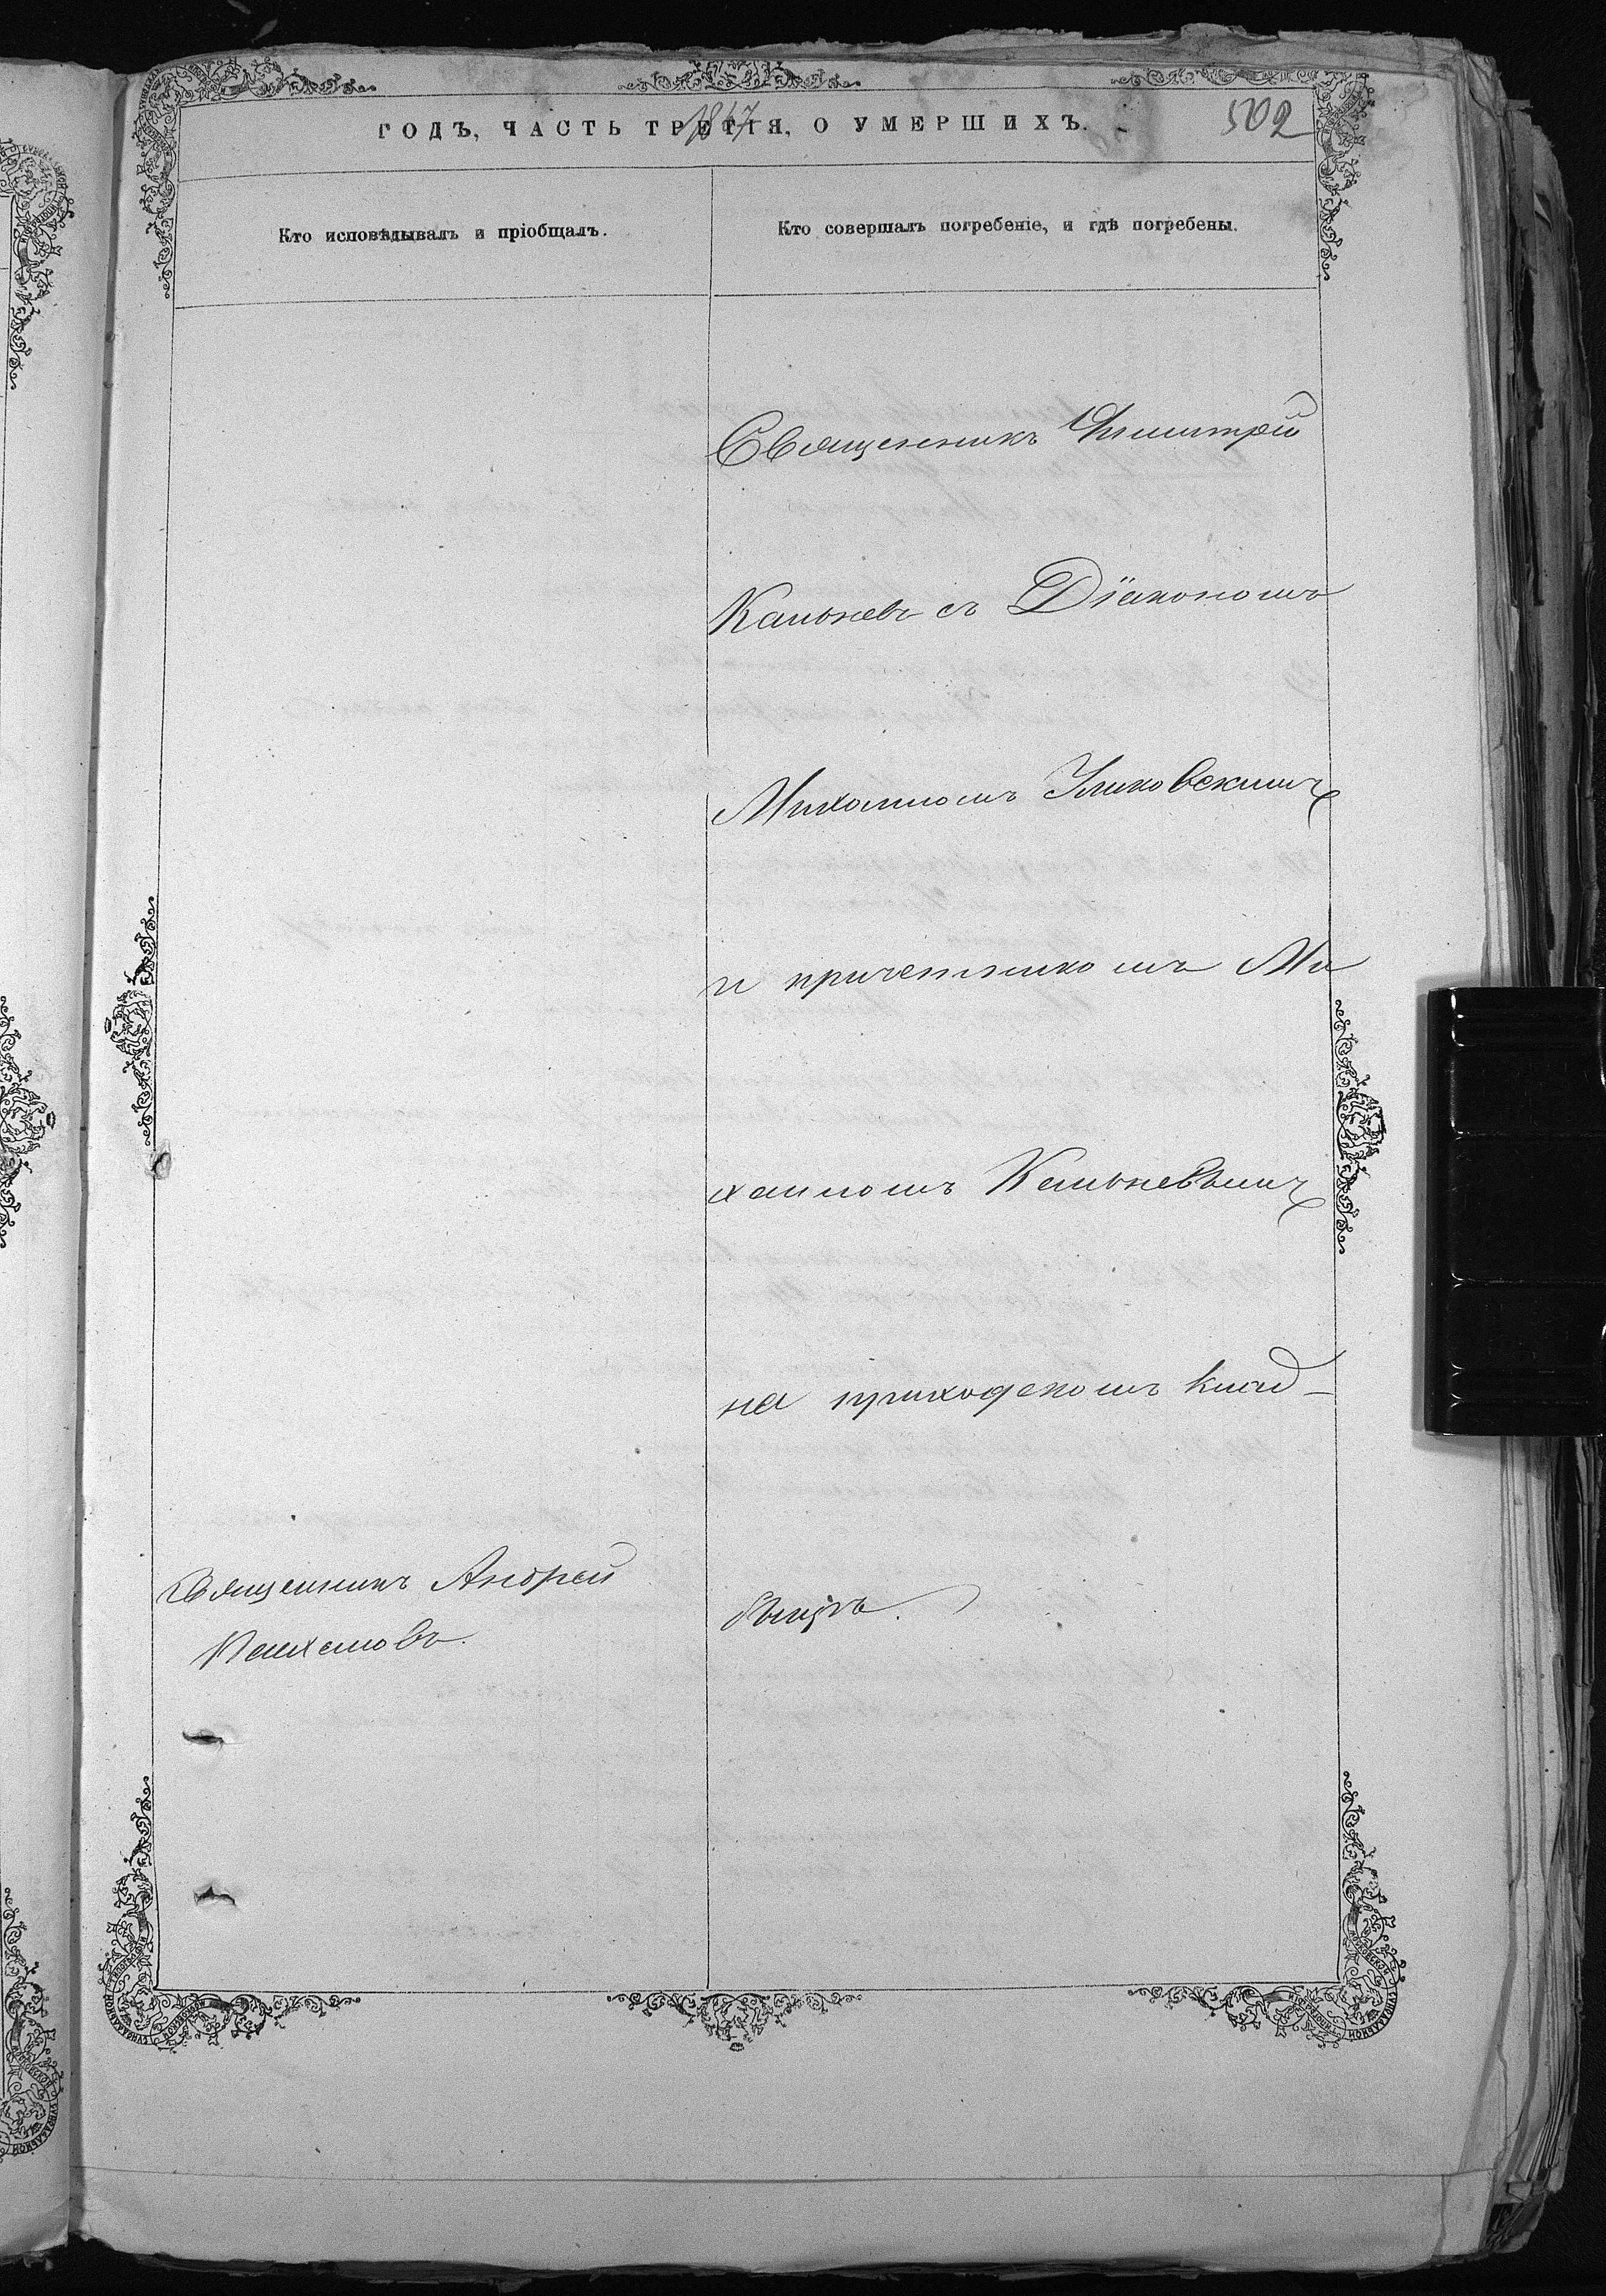 ГОДЪ, ЧАСТЬ ТРЕТІЯ, О УМЕРШИХЪ.
1867
502
Кто исповѣдывалъ и пріобщалъ.
Кто совершалъ погребеніе, и гдѣ погребены.
Священникъ Димитрій
съ Діакономъ
Михаиломъ
и причетникомъ Ми
хаиломъ
на приходскомъ клад-
бищѣ.
Священникъ Андрей